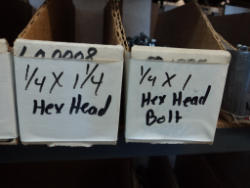 1/4 X 1 1/4
Hex Head
1/4 X 1
Hex Head
Bolt